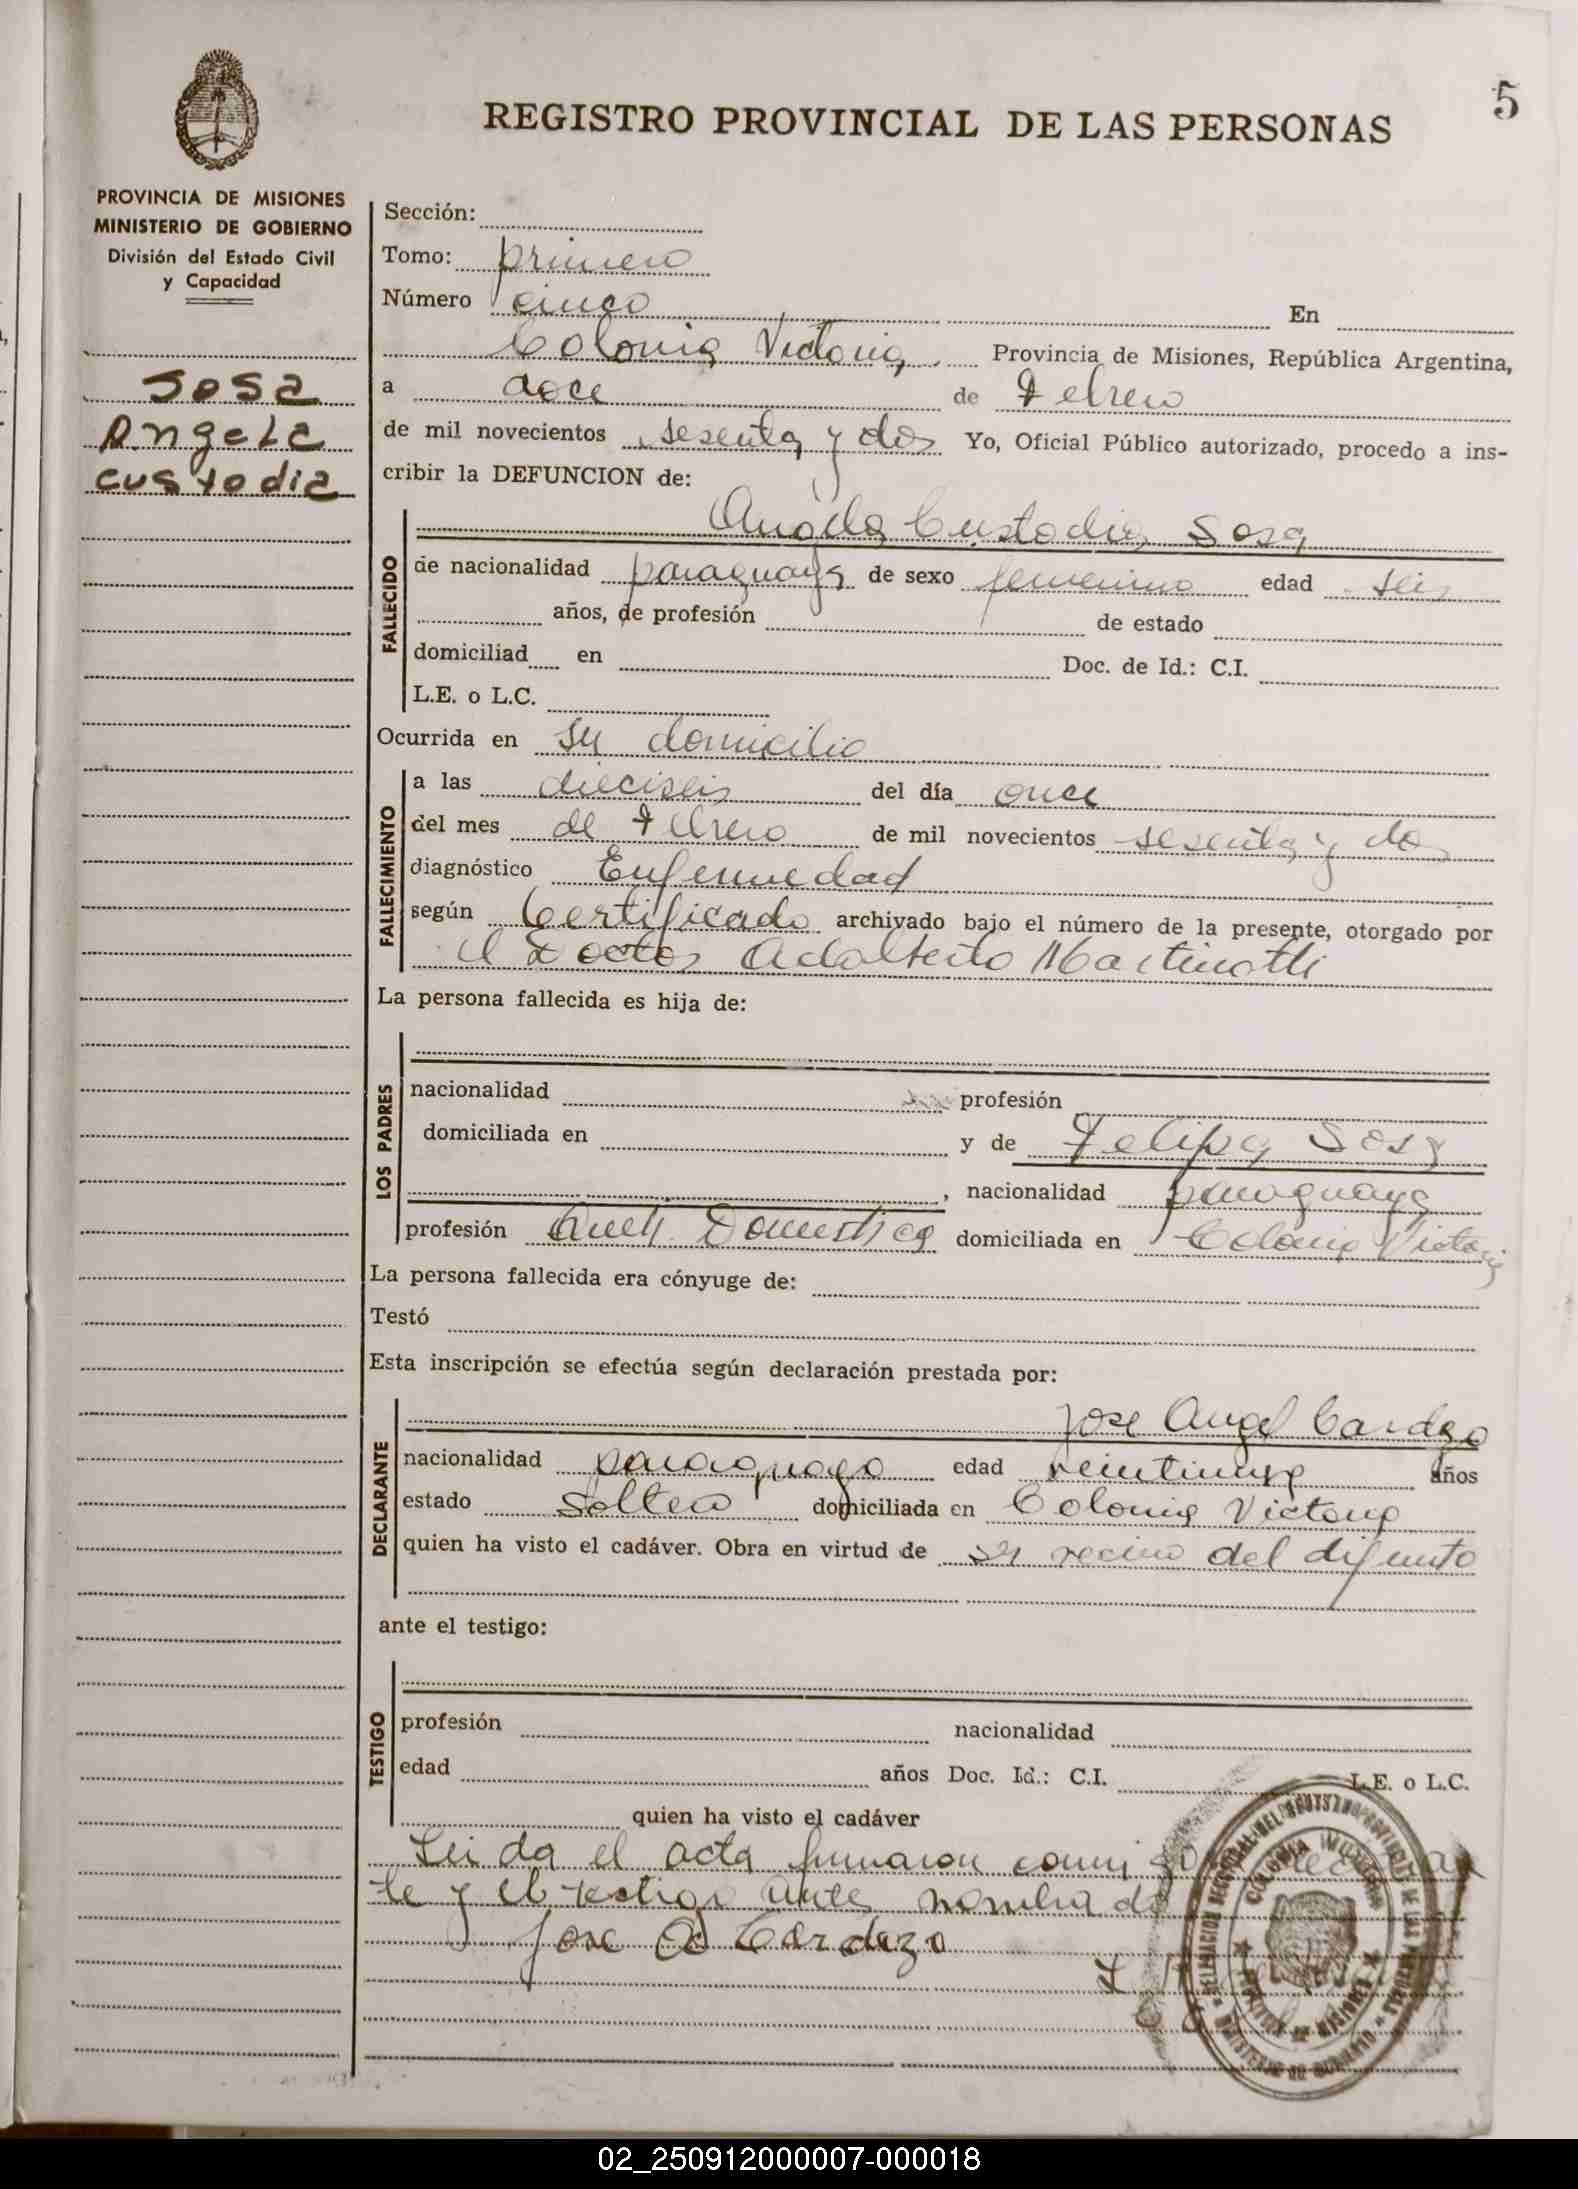 5
REGISTRO PROVINCIAL DE LAS PERSONAS
PROVINCIA DE MISIONES
MINISTERIO DE GOBIERNO
División del Estado Civil
y Capacidad
Sosa
Angela
Custodia
Sección:
Tomo: primero
Número cinco En
Colonia Victoria Provincia de Misiones, República Argentina,
a doce de Febrero
de mil novecientos sesenta y dos Yo, Oficial Público autorizado, procedo a ins-
cribir la DEFUNCION de:
FALLECIDO
Angela Custodia Sosa
de nacionalidad paraguaya de sexo femenino edad seis
años, de profesión de estado
domiciliad en Doc. de Id.: C.I.
L.E. o L.C.
Ocurrida en su domicilio
FALLECIMIENTO
a las dieciseis del día once
del mes de Febrero de mil novecientos sesenta y dos
diagnóstico Enfermedad
según Certificado archivado bajo el número de la presente, otorgado por
el Doctor Adalberto Martinotti
La persona fallecida es hija de:
LOS PADRES
nacionalidad profesión
domiciliada en y de Felipa Sosa
, nacionalidad paraguaya
profesión Domestica domiciliada en Colonia Victoria
La persona fallecida era cónyuge de:
Testó
Esta inscripción se efectúa según declaración prestada por:
DECLARANTE
Jose Angel Cardozo
nacionalidad paraguayo edad años
estado Soltero domiciliada en Colonia Victoria
quien ha visto el cadáver. Obra en virtud de ser vecino del difunto
ante el testigo:
TESTIGO
profesión nacionalidad
edad años Doc. Id.: C.I. L.E. o L.C.
quien ha visto el cadáver
Leida el acta firmaron conmigo el declaran
te y el testigo antes nombrado
Jose A Cardozo
02_250912000007-000018